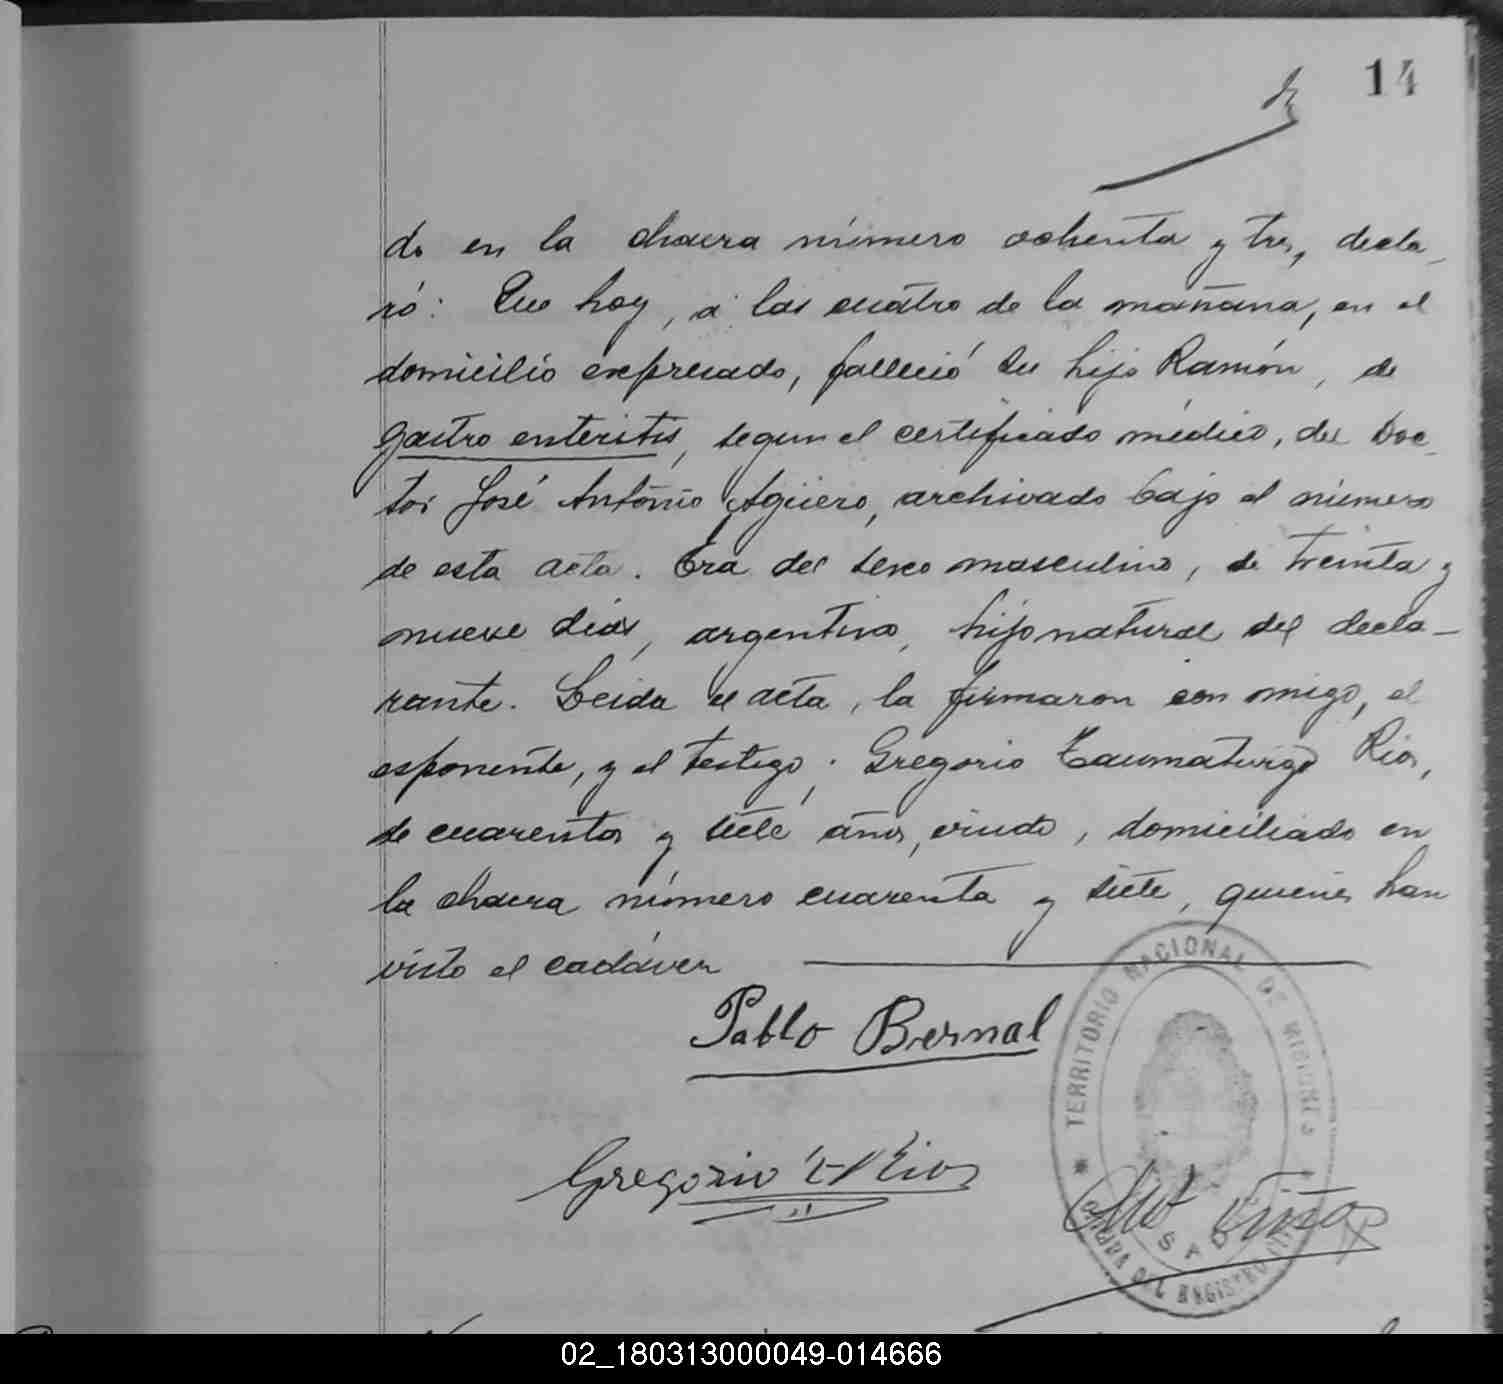 14
do en la chacra número ochenta y tres, decla-
ró: Que hoy, a las cuatro de la mañana, en el
domicilio expresado, falleció su hijo Ramón, de
gastro enteritis, segun el certificado médico, del Doc-
tor José Antonio Agüero, archivado bajo el número
de esta acta. Era del sexo masculino, de treinta y
nueve días, argentino, hijo natural del decla-
rante. Leida el acta, la firmaron con migo, el
esponente, y el testigo: Gregorio Taumaturgo Rios,
de cuarenta y siete años, viudo, domiciliado en
la chacra número cuarenta y siete, quienes han
visto el cadáver
Pablo Bernal
Gregorio T Rios
TERRITORIO NACIONAL DE MISIONES
02_180313000049-014666